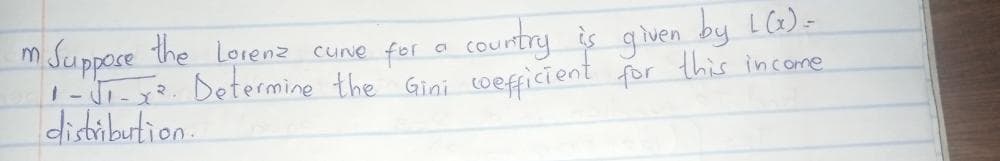 m Suppose the Lorenz curve for a country is given by L(x) =
1 - √1 - x². Determine the Gini coefficient for this income
distribution.